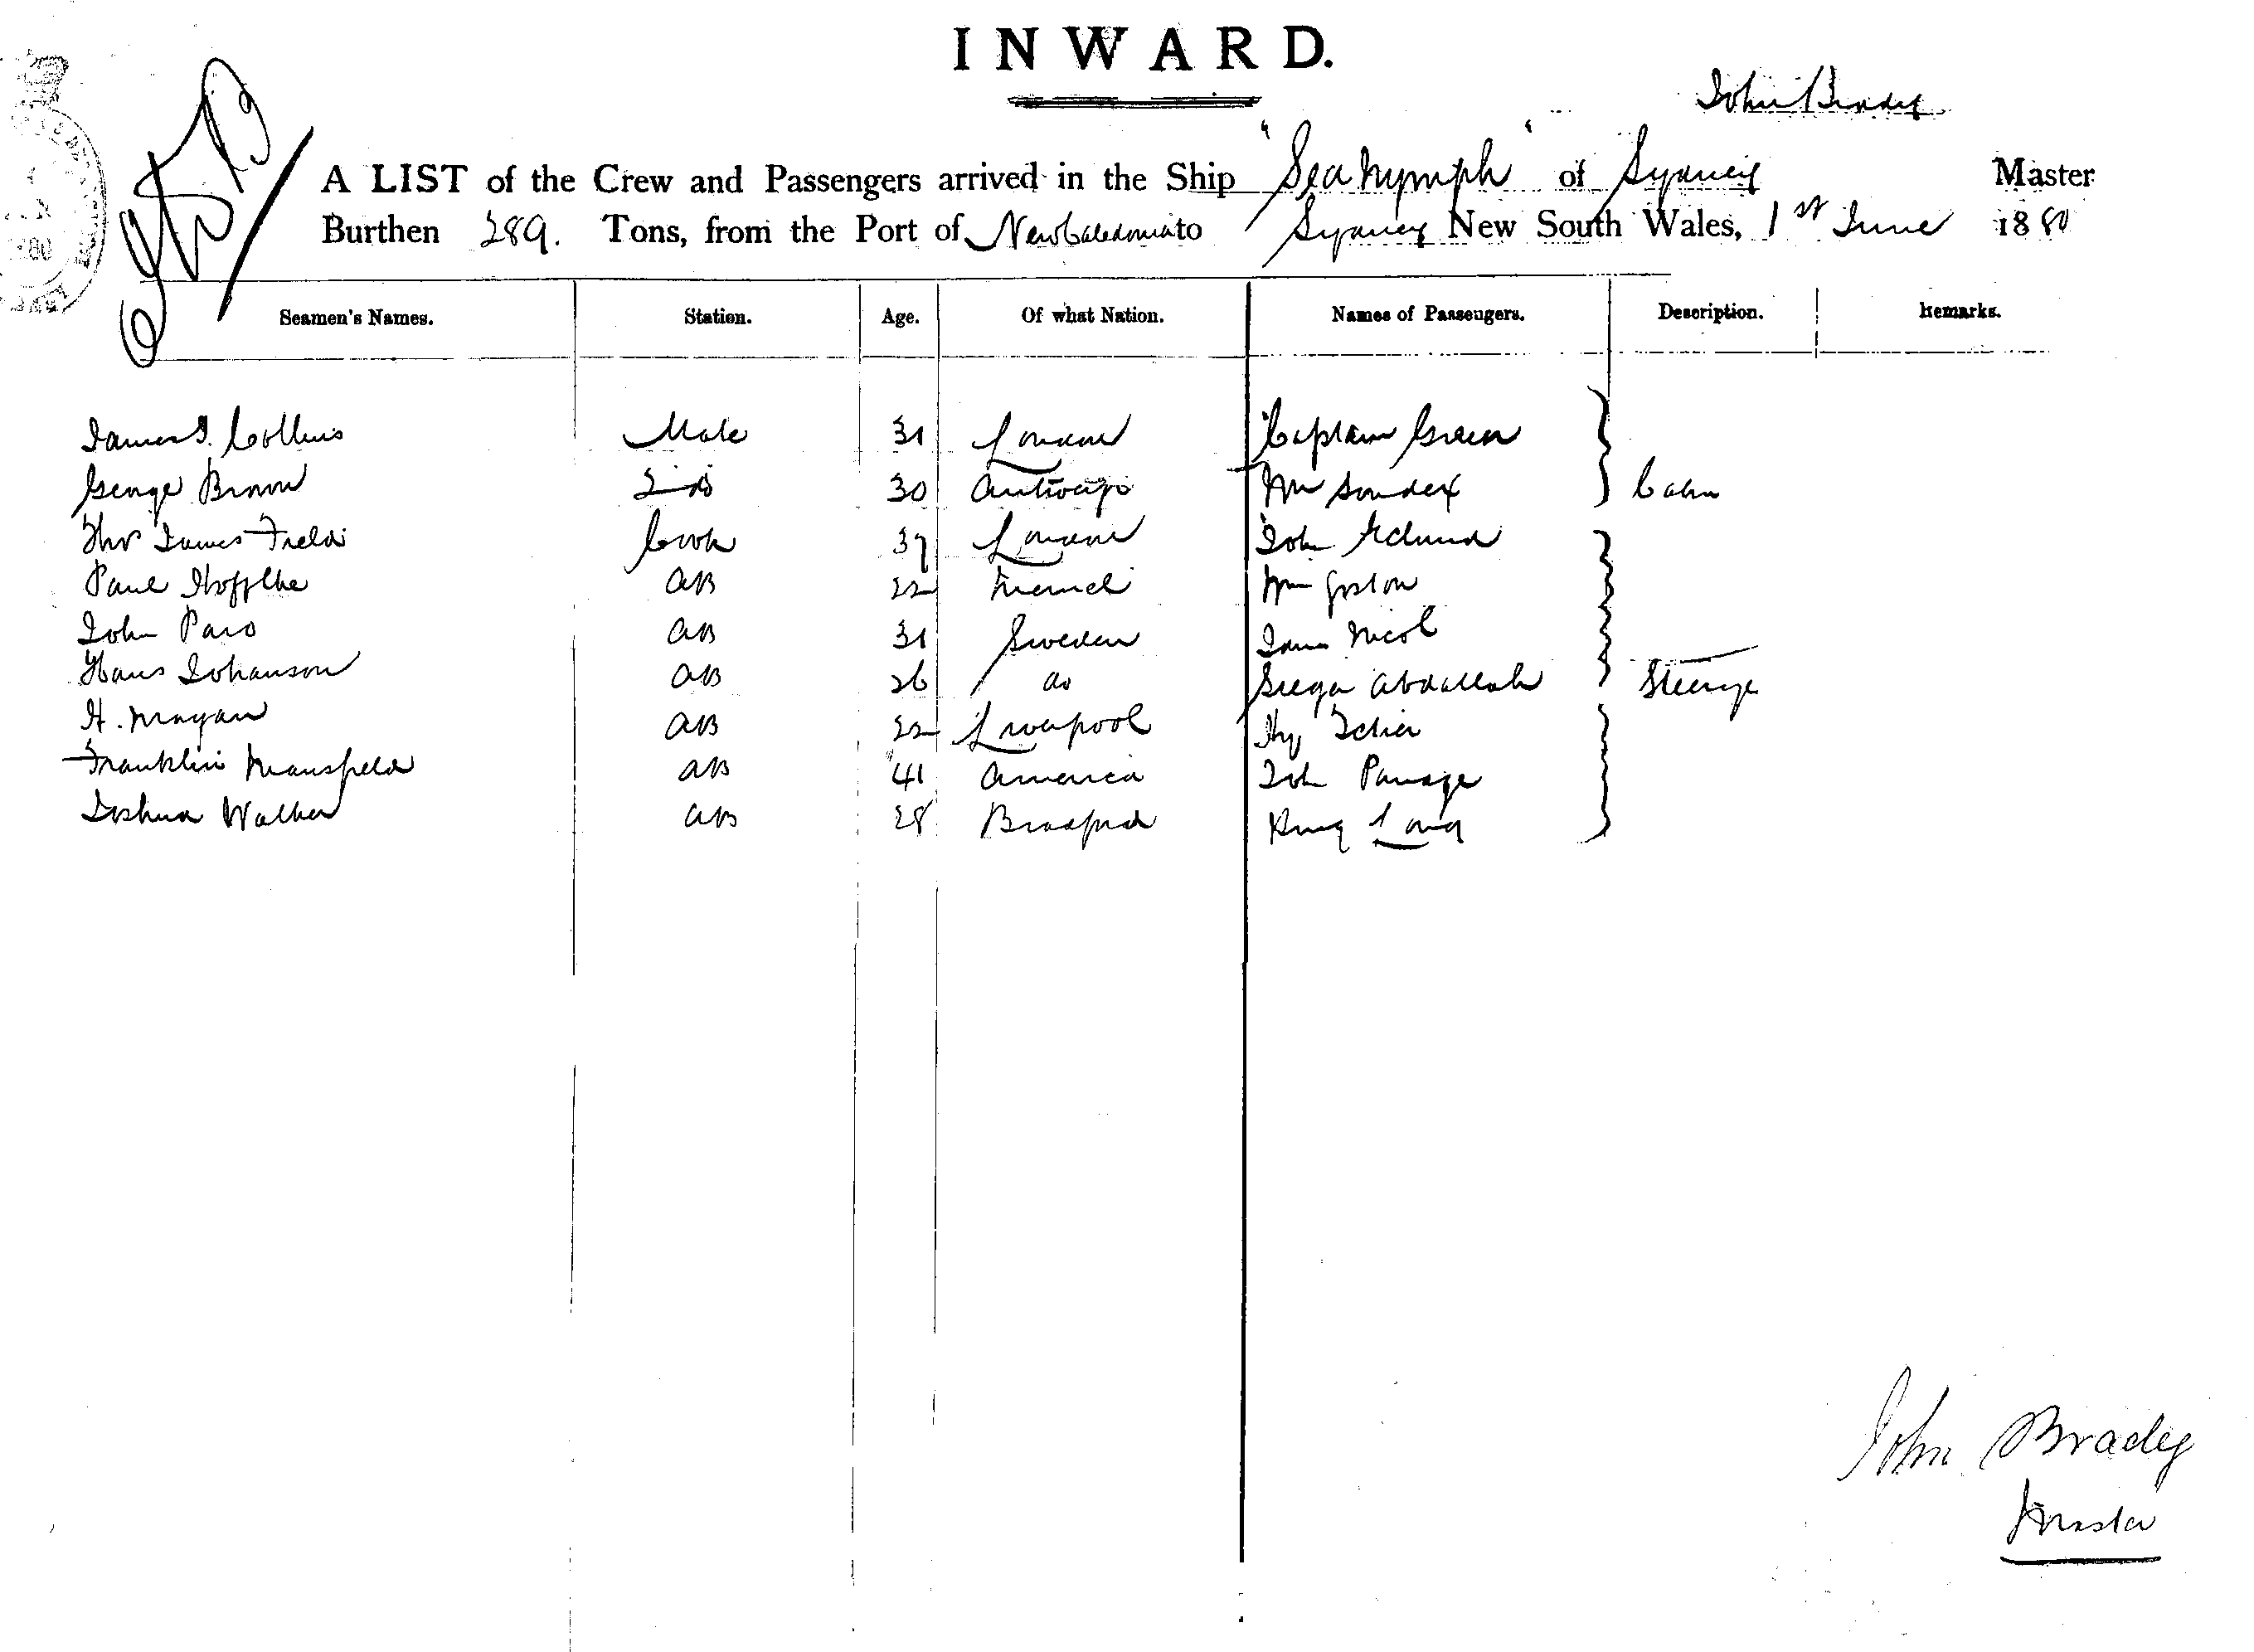 INWARD.
John Brady
A LIST of the Crew and Passengers arrived in the Ship "Sea Nymph" of Sydney Master
Burthen 289. Tons, from the Port of New Caledonia to Sydney New South Wales, 1st June 1880
Seamen's Names. Station. Age. Of what Nation. Names of Passengers. Description. Remarks.
James J. Collins Mate 31 London Captain Green
George Brown 2 do 30 Mr Cabin
Thos James Field Cook 37 London John
Paul AB 22 Wm
John Paro AB 31 Sweden Nicol
Hans Johanson AB 26 do Abdallah Steerage
H. Morgan AB 22 Liverpool Hy
Franklin Mansfield AB 41 America John
Joshua Walker AB 28 Bradford
John Brady
Master